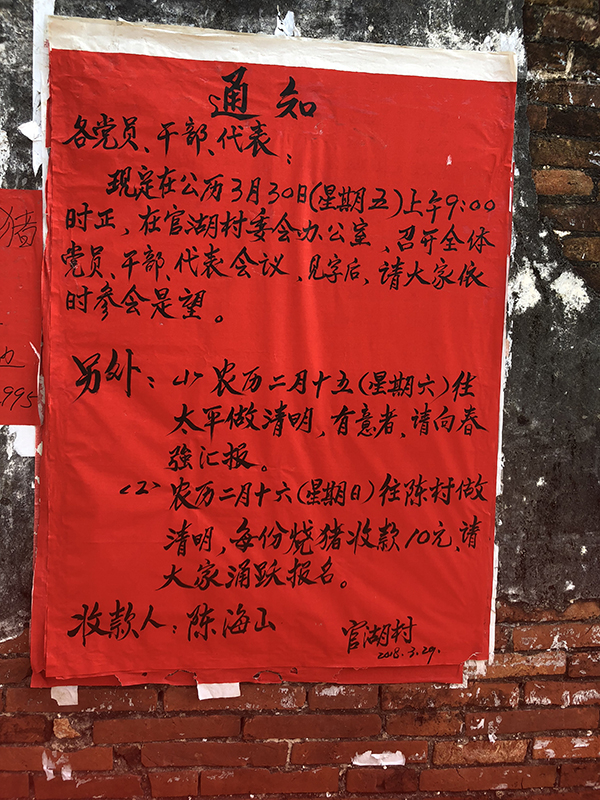 通知
各党员、干部、代表：
现定在公历3月30日(星期五)上午9:00
时正，在官湖村委会办公室、召开全体
党员、干部、代表会议、见字后、请大家依
时参会是望。
另外：(1)农历二月十五(星期六)往
太平做清明，有意者、请向春
强汇报。
(2)农历二月十六(星期日)往陈村做
清明，每份烧猪收款10元、请
大家涌跃报名。
收款人：陈海山
官湖村
2018.3.29.
猪
995